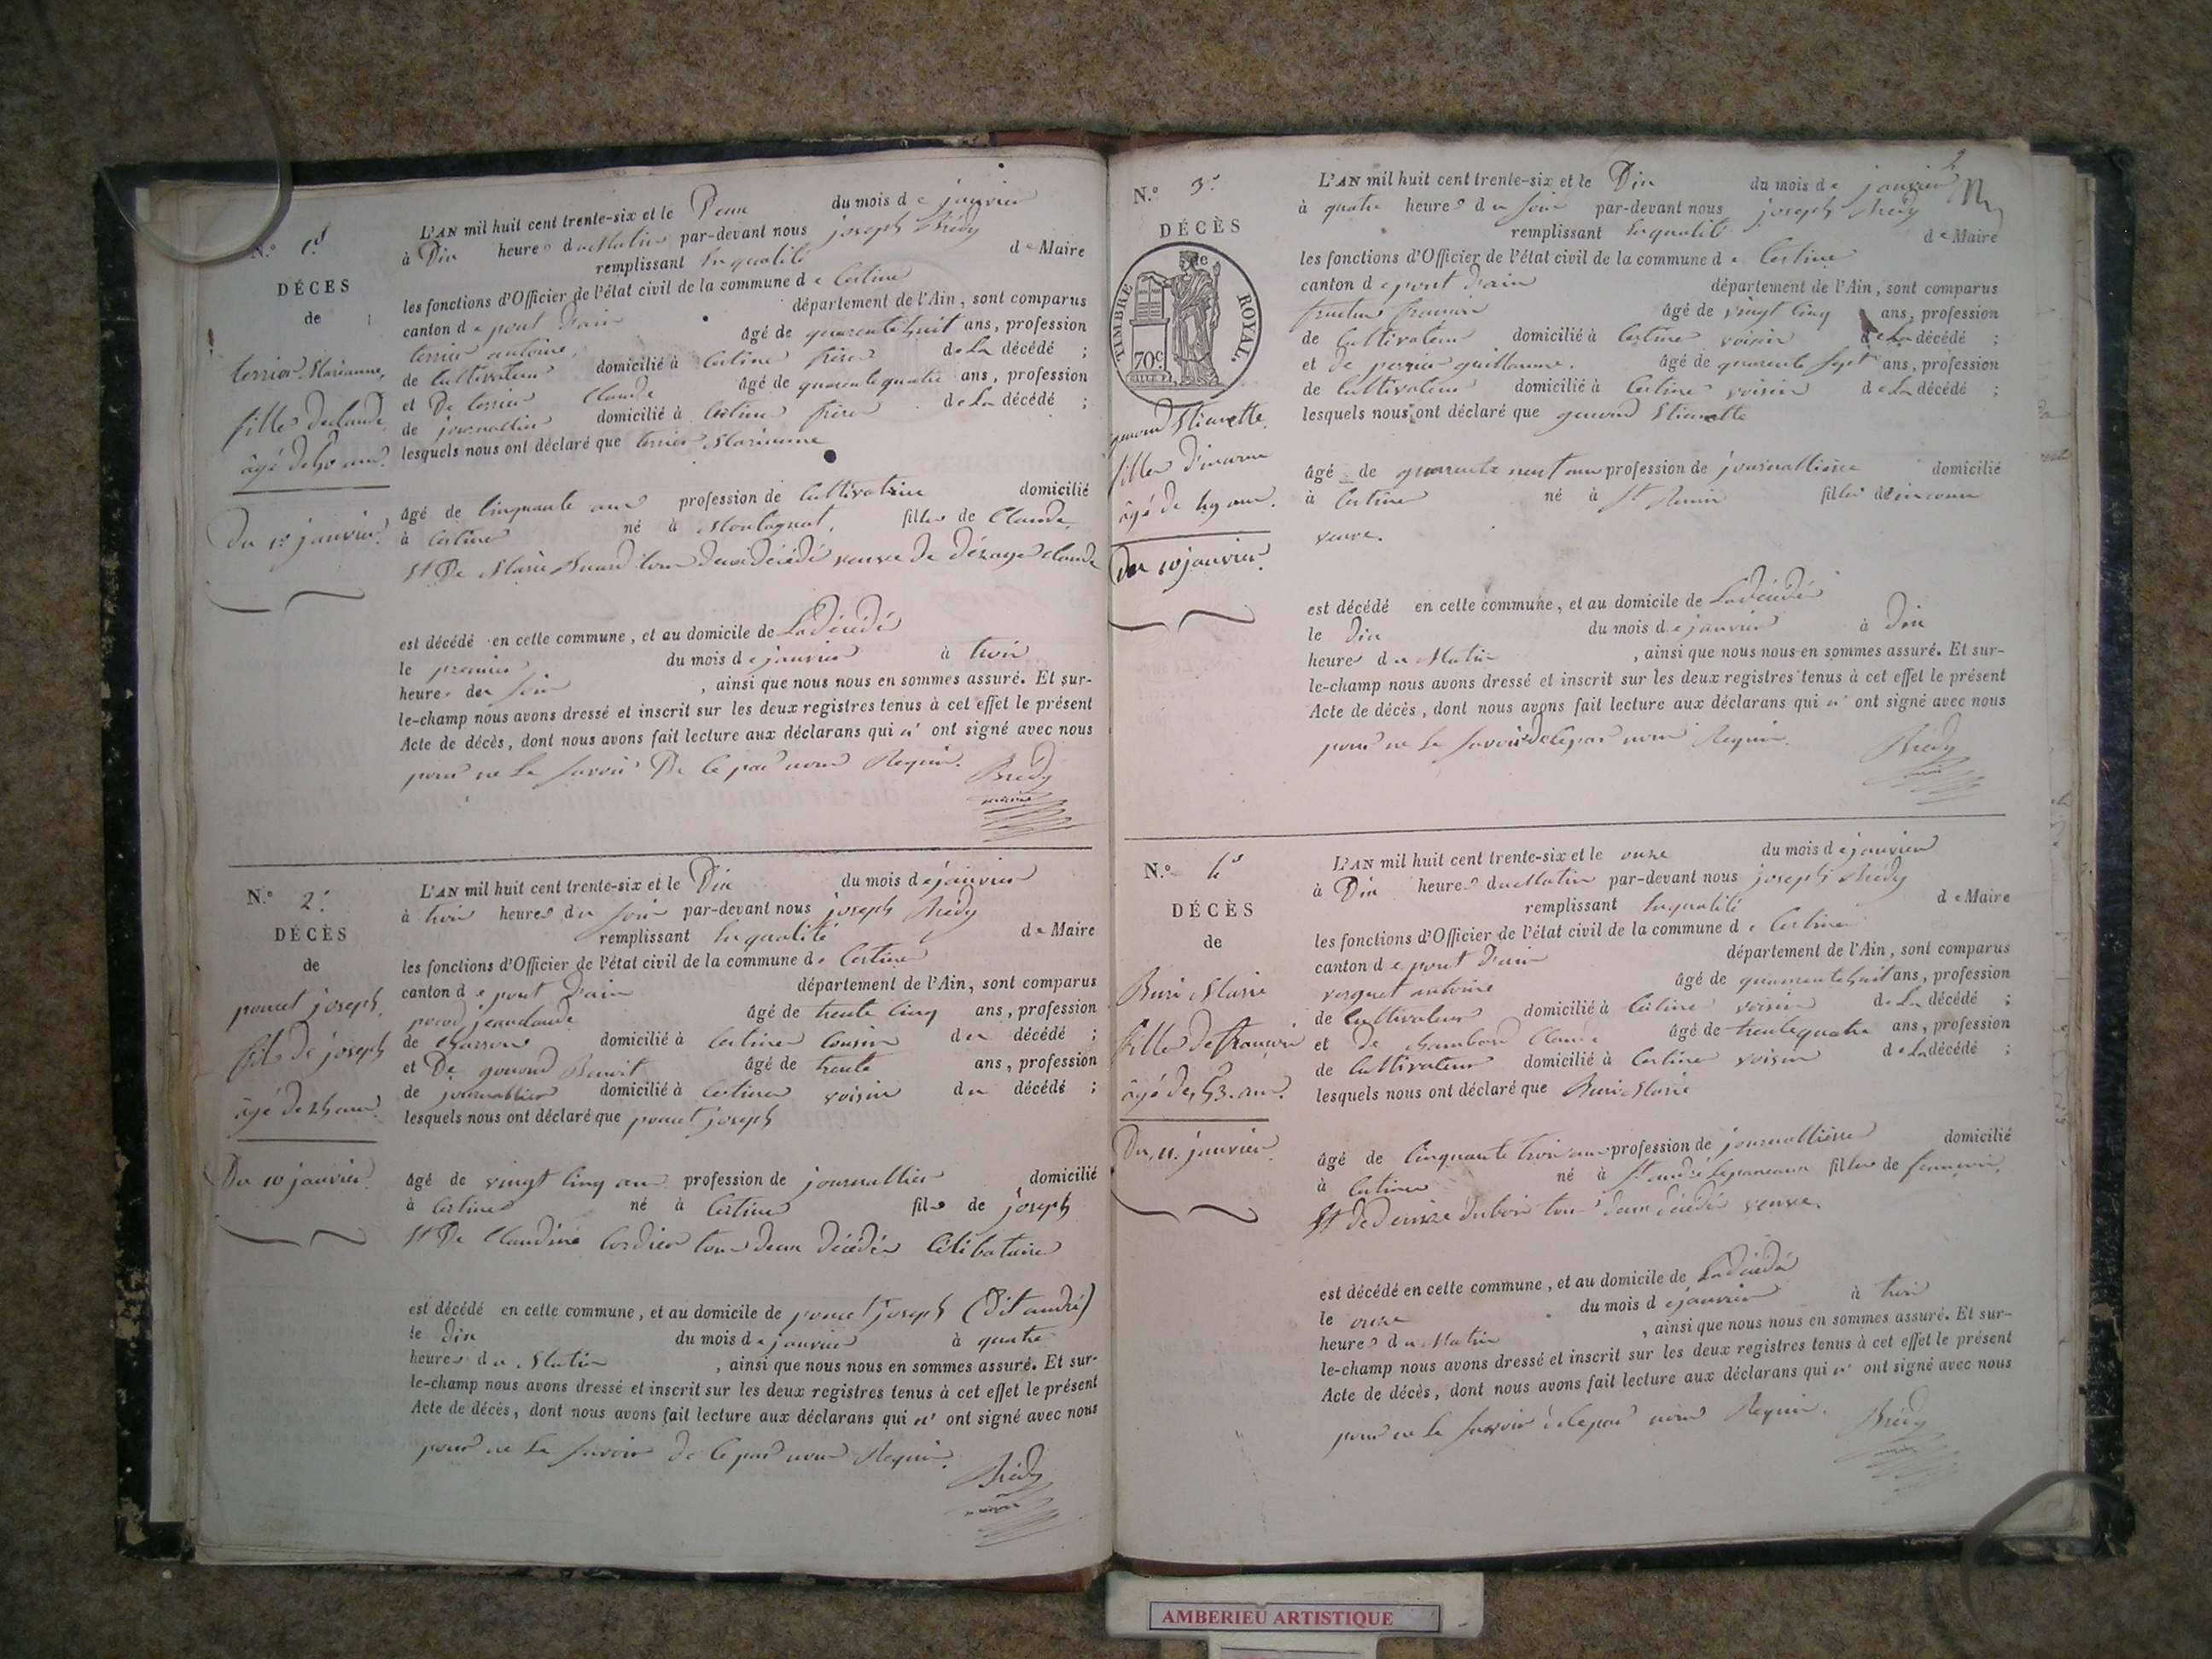 N.° 1.er
DÉCES
de
terrier Marianne,
fille de Claude
âgé de 50 ans.
Du 1.er janvier.
L'AN mil huit cent trente-six et le Deux du mois de janvier
à Dix heures du Matin par-devant nous joseph Brédy
remplissant En qualité de Maire
les fonctions d'Officier de l'état civil de la commune de Certines
canton de pont d'ain département de l'Ain, sont comparus
terrier antoine, âgé de quarente huit ans, profession
de Cultivateur domicilié à Certines frère de La décédé ;
et De terrier Claude âgé de quarente quatre ans, profession
de journallier domicilié à Certines frère de La décédé ;
lesquels nous ont déclaré que terrier Marianne
âgé de Cinquante ans profession de Cultivatrice domicilié
à Certines né à Montagnat, fille de Claude
Et De Marie tous deux décédé veuve de Claude
est décédé en cette commune, et au domicile de La décédé
le premier du mois de janvier à trois
heures du soir, ainsi que nous nous en sommes assuré. Et sur-
le-champ nous avons dressé et inscrit sur les deux registres tenus à cet effet le présent
Acte de décès, dont nous avons fait lecture aux déclarans qui n' ont signé avec nous
pour ne Le savoir De Ce par nous Requis.
Brédy
maire
N.° 2.e
DÉCÈS
de
poncet joseph,
fils de joseph
âgé de 25 ans.
Du 10 janvier.
L'AN mil huit cent trente-six et le Dix du mois de janvier
à trois heures du soir par-devant nous joseph Brédy
remplissant En qualité de Maire
les fonctions d'Officier de l'état civil de la commune de Certines
canton de pont d'ain département de l'Ain, sont comparus
jean claude âgé de trente cinq ans, profession
de Charron domicilié à Certines Cousin du décédé ;
et De Benoit âgé de trente ans, profession
de journallier domicilié à Certines voisin du décédé ;
lesquels nous ont déclaré que poncet joseph
âgé de vingt cinq ans profession de journallier domicilié
à Certines né à Certines fils de joseph
Et De Claudine Cordier tous deux décédés Célibataire
est décédé en cette commune, et au domicile de poncet joseph (Dit andré)
le dix du mois de janvier à quatre
heures du Matin, ainsi que nous nous en sommes assuré. Et sur-
le-champ nous avons dressé et inscrit sur les deux registres tenus à cet effet le présent
Acte de décès, dont nous avons fait lecture aux déclarans qui n' ont signé avec nous
pour ne Le savoir de Ce par nous Requis.
Brédy
maire
2
N.° 3.e
DÉCÈS
TIMBRE ROYAL.
70c
Etiennette
fille d'inconnu
âgé de 49 ans.
Du 10 janvier.
L'AN mil huit cent trente-six et le Dix du mois de janvier
à quatre heures du soir par-devant nous joseph Brédy
remplissant En qualité de Maire
les fonctions d'Officier de l'état civil de la commune de Certines
canton de pont d'ain département de l'Ain, sont comparus
françois âgé de vingt cinq ans, profession
de Cultivateur domicilié à Certines voisin de La décédé ;
et de perrin guillaume. âgé de quarente sept ans, profession
de Cultivateur domicilié à Certines voisin de La décédé ;
lesquels nous ont déclaré que Etiennette
âgé de quarente neuf ans profession de journallière domicilié
à Certines né à St fille d'inconnu
veuve.
est décédé en cette commune, et au domicile de La décédé
le Dix du mois de janvier à Dix
heures du Matin, ainsi que nous nous en sommes assuré. Et sur-
le-champ nous avons dressé et inscrit sur les deux registres tenus à cet effet le présent
Acte de décès, dont nous avons fait lecture aux déclarans qui n' ont signé avec nous
pour ne Le savoir de Ce par nous Requis.
Brédy
maire
N.° 4.e
DÉCÈS
de
Buri Marie
fille de françois
âgé de 53. ans.
Du 11. janvier.
L'AN mil huit cent trente-six et le onze du mois de janvier
à Dix heures du Matin par-devant nous joseph Brédy
remplissant En qualité de Maire
les fonctions d'Officier de l'état civil de la commune de Certines
canton de pont d'ain département de l'Ain, sont comparus
antoine âgé de quarente huit ans, profession
de Cultivateur domicilié à Certines voisin de La décédé ;
et de Claude âgé de trente quatre ans, profession
de Cultivateur domicilié à Certines voisin de La décédé ;
lesquels nous ont déclaré que Buri Marie
âgé de Cinquante trois ans profession de journallière domicilié
à Certines né à St andré le panoux fille de françois,
Et de denise dubois tous deux décédés veuve.
est décédé en cette commune, et au domicile de La décédé
le onze du mois de janvier à trois
heures du Matin, ainsi que nous nous en sommes assuré. Et sur-
le-champ nous avons dressé et inscrit sur les deux registres tenus à cet effet le présent
Acte de décès, dont nous avons fait lecture aux déclarans qui n' ont signé avec nous
pour ne Le savoir de Ce par nous Requis.
Brédy
AMBERIEU ARTISTIQUE